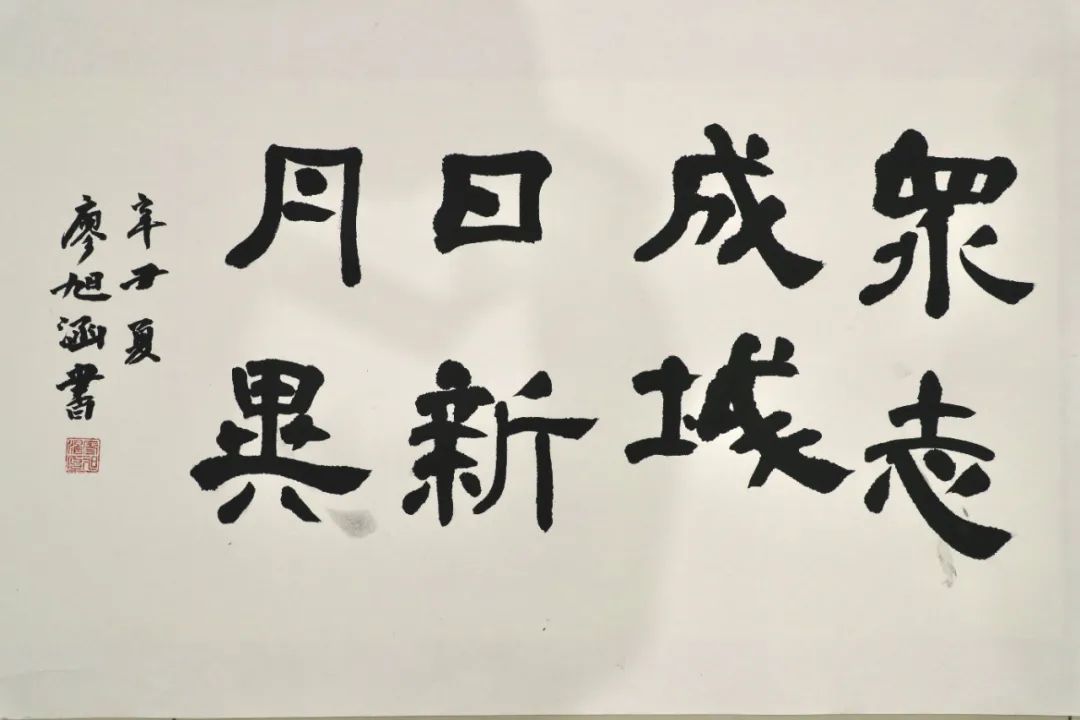 眾志
成城
日新
月異
辛丑夏
廖旭涵書